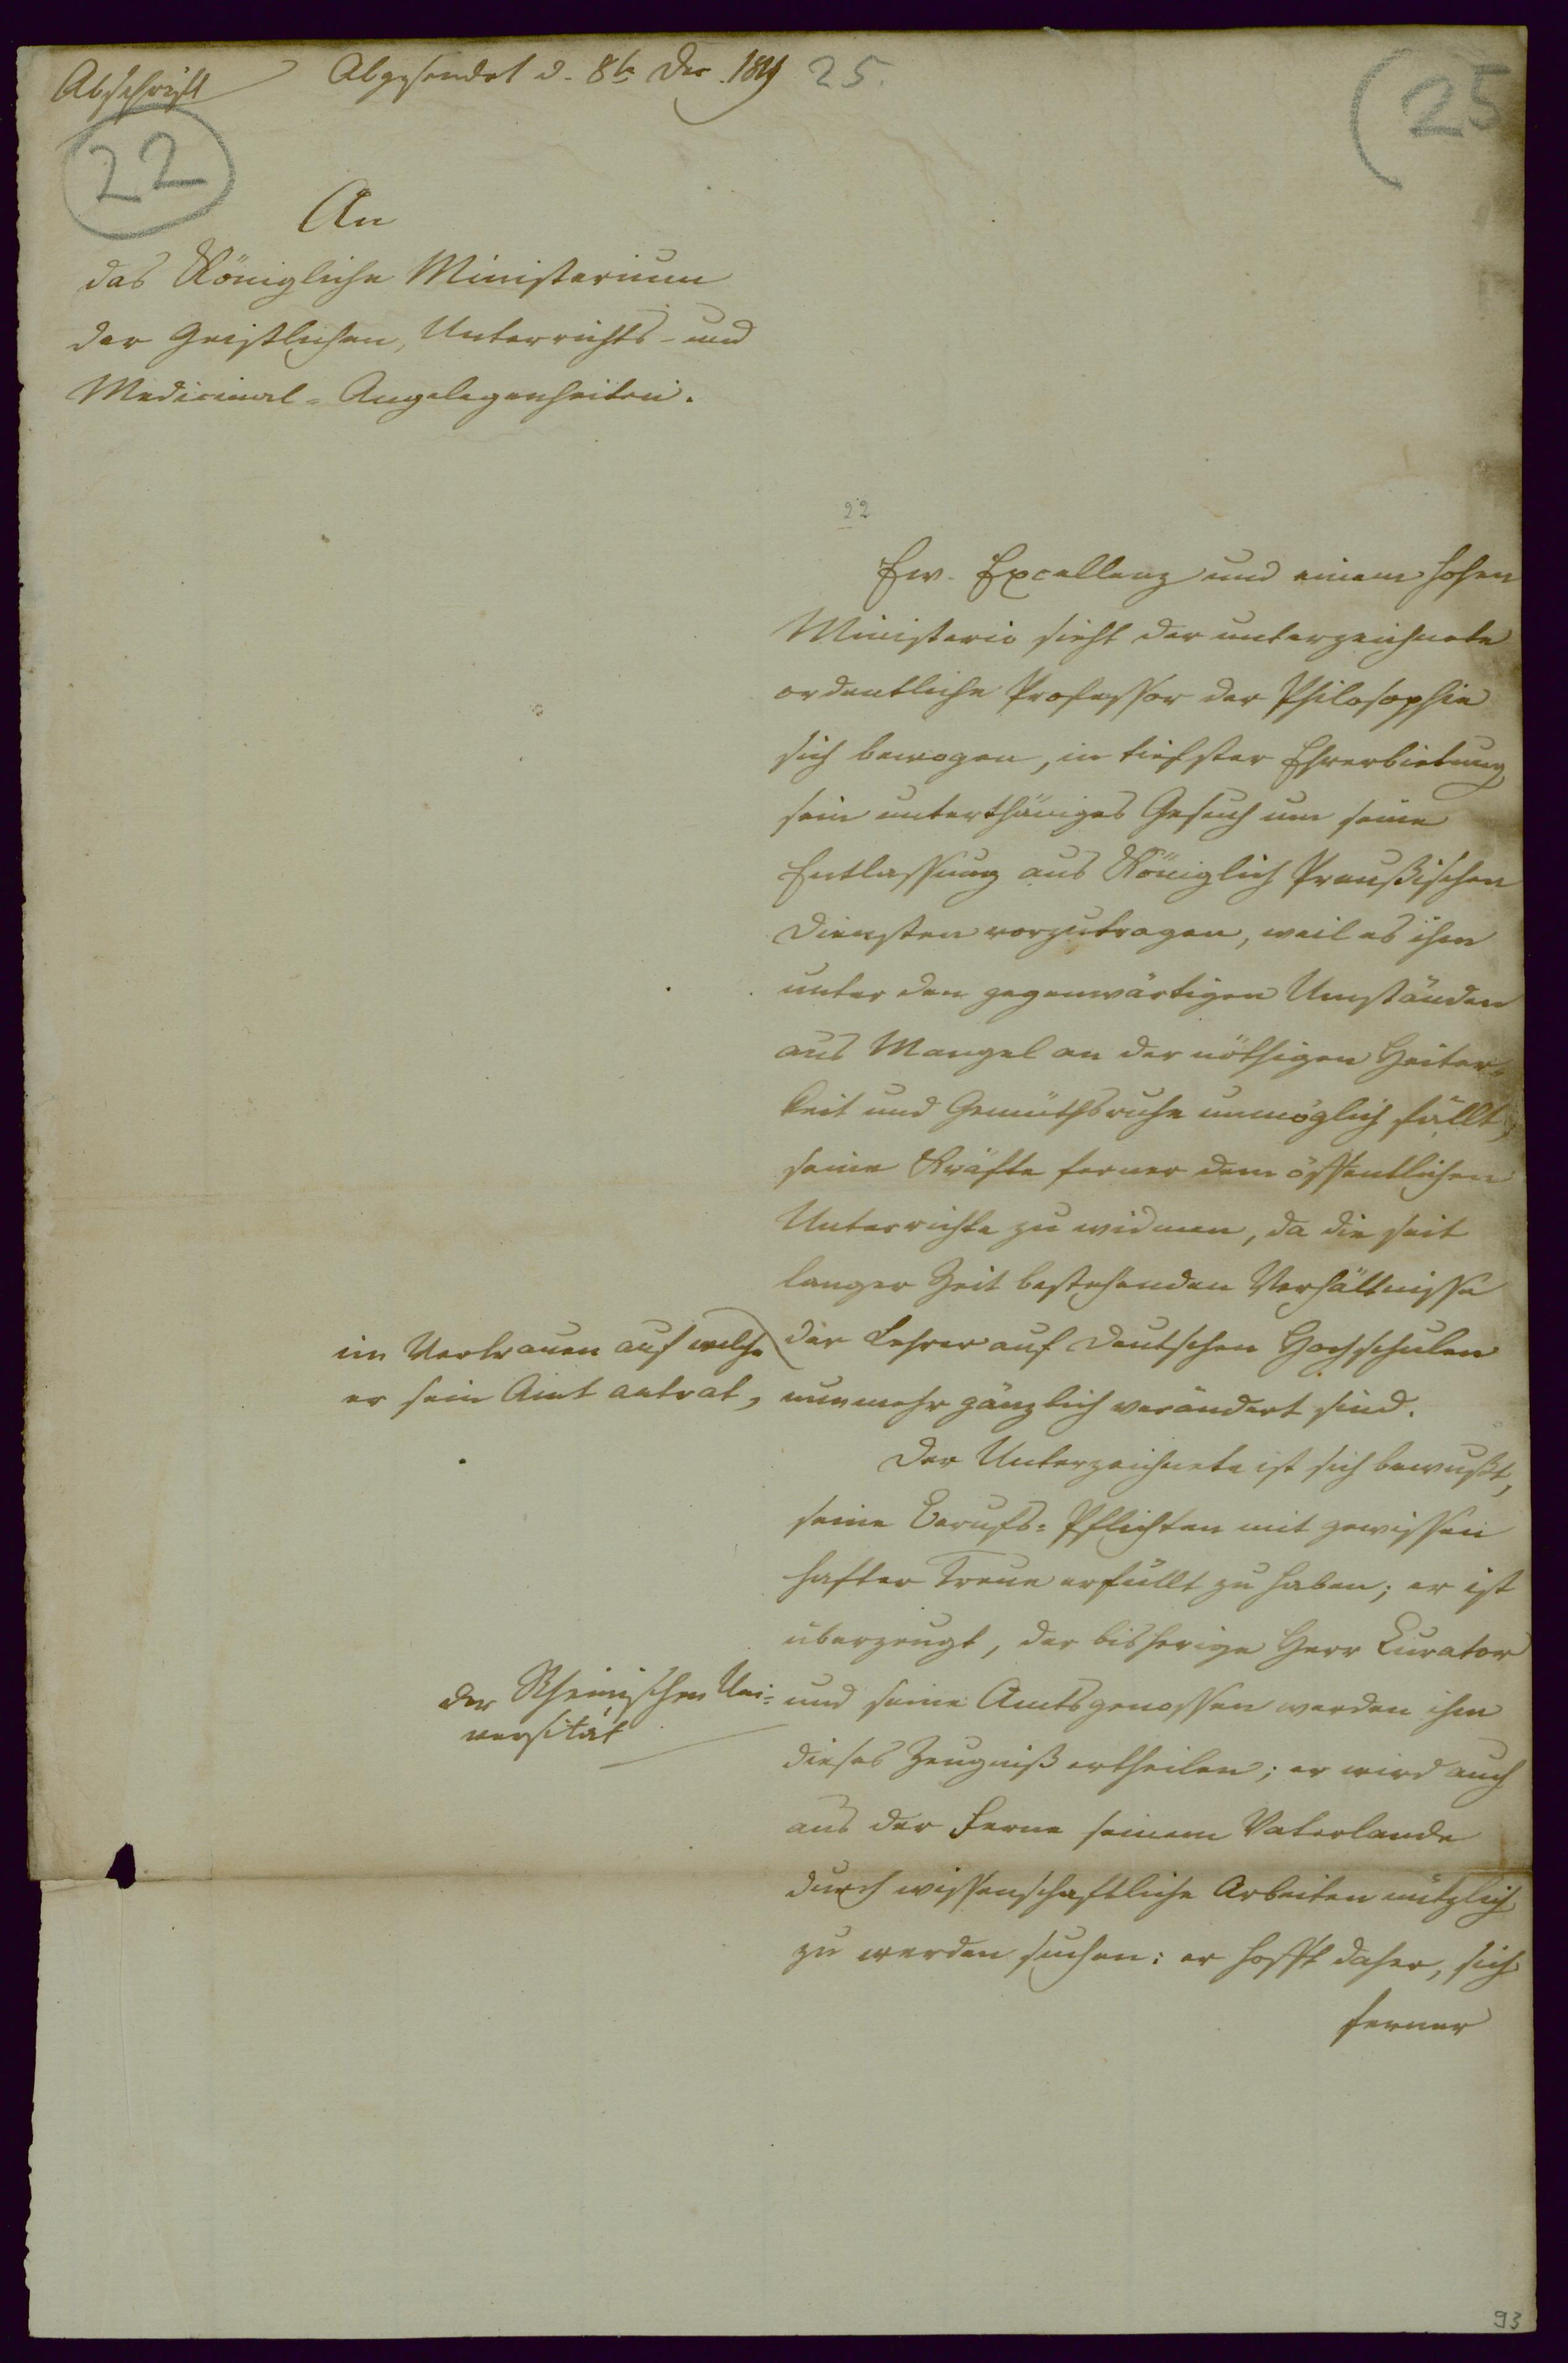 Abschrift Abgesendet d. 8ten Dec. 1819 25.
(25
22
An
das Königliche Ministerium
der Geistlichen, Unterrichts- und
Medicinal-Angelegenheiten.
22
Ew. Excellenz und einem hohen
Ministerio sieht der unterzeichnete
ordentliche Professor der Philosophie
sich bewogen, in tiefster Ehrerbietung
sein unterthäniges Gesuch um seine
Entlassung aus Königlich Preußischen
Diensten vorzutragen, weil es ihm
unter den gegenwärtigen Umständen
aus Mangel an der nöthigen Heiter-
keit und Gemüthsruhe unmöglich fällt,
seine Kräfte ferner dem öffentlichen
Unterrichte zu widmen, da die seit
langer Zeit bestehenden Verhältnisse
der Lehrer auf deutschen Hochschulen
im Vertrauen auf welche
er sein Amt antrat,
nunmehr gänzlich verändert sind.
Der Unterzeichnete ist sich bewußt,
seine Berufs-Pflichten mit gewissen
hafter Treue erfüllt zu haben; er ist
überzeugt, der bisherige Herr Curator
der Rheinischen Uni-
versität
und seine Amtsgenossen werden ihm
dieses Zeugniß ertheilen; er wird auch
aus der Ferne seinem Vaterlande
durch wissenschaftliche Arbeiten nützlich
zu werden suchen: er hofft daher, sich
ferner
93